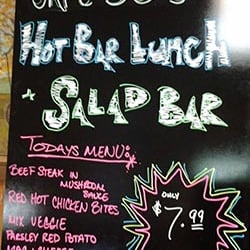 Hot Bar Lunch
+ Salad Bar
Todays Menu:
Beef Steak in
Mushroom
Sauce
Red Hot Chicken Bites
Mix Veggie
Parsley Red Potato
Only
$7.99